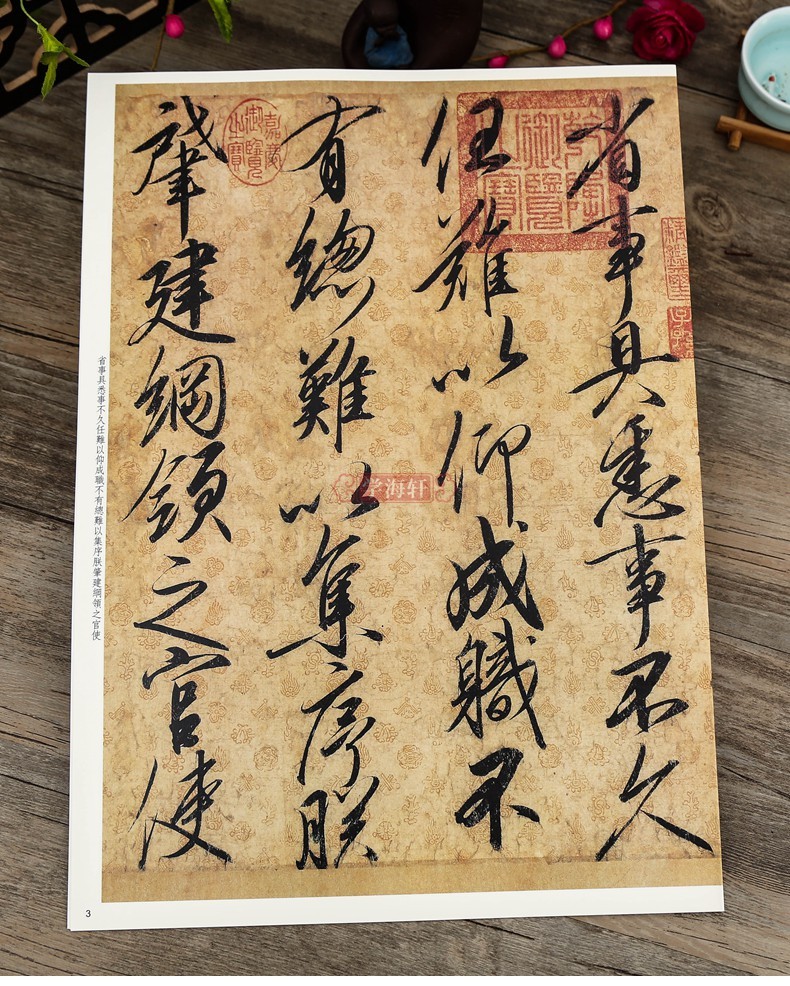 省事具悉事不久
任難以仰成職不
有總難以集序朕
肇建綱領之官使
乾隆御覽之寶
嘉慶御覽之寶
学海轩
省事具悉事不久任難以仰成職不有總難以集序朕肇建綱領之官使
3